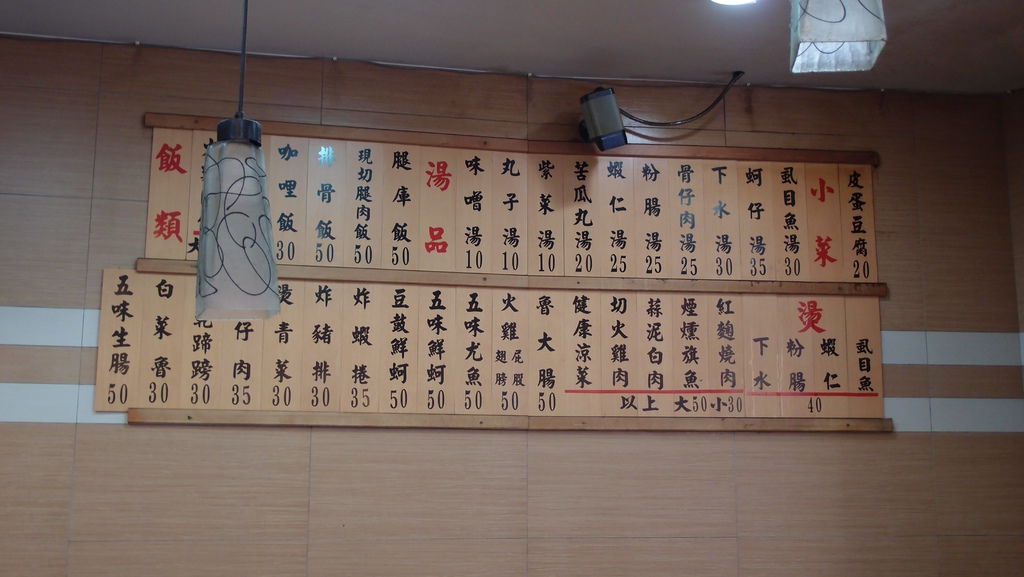 飯類
大
咖哩飯30
排骨飯50
現切腿肉飯50
腿庫飯50
湯品
味噌湯10
丸子湯10
紫菜湯10
苦瓜丸湯20
蝦仁湯25
粉腸湯25
骨仔肉湯25
下水湯30
蚵仔湯35
虱目魚湯30
小菜
皮蛋豆腐20
五味生腸50
白菜魯30
蹄蹄30
仔肉35
燙青菜30
炸豬排30
炸蝦捲35
豆鼓鮮蚵50
五味鮮蚵50
五味尤魚50
火雞翅膀屁股50
魯大腸50
健康涼菜
切火雞肉
蒜泥白肉
煙燻旗魚
紅麴燒肉
以上 大50小30
燙
下水
粉腸
蝦仁
虱目魚
40